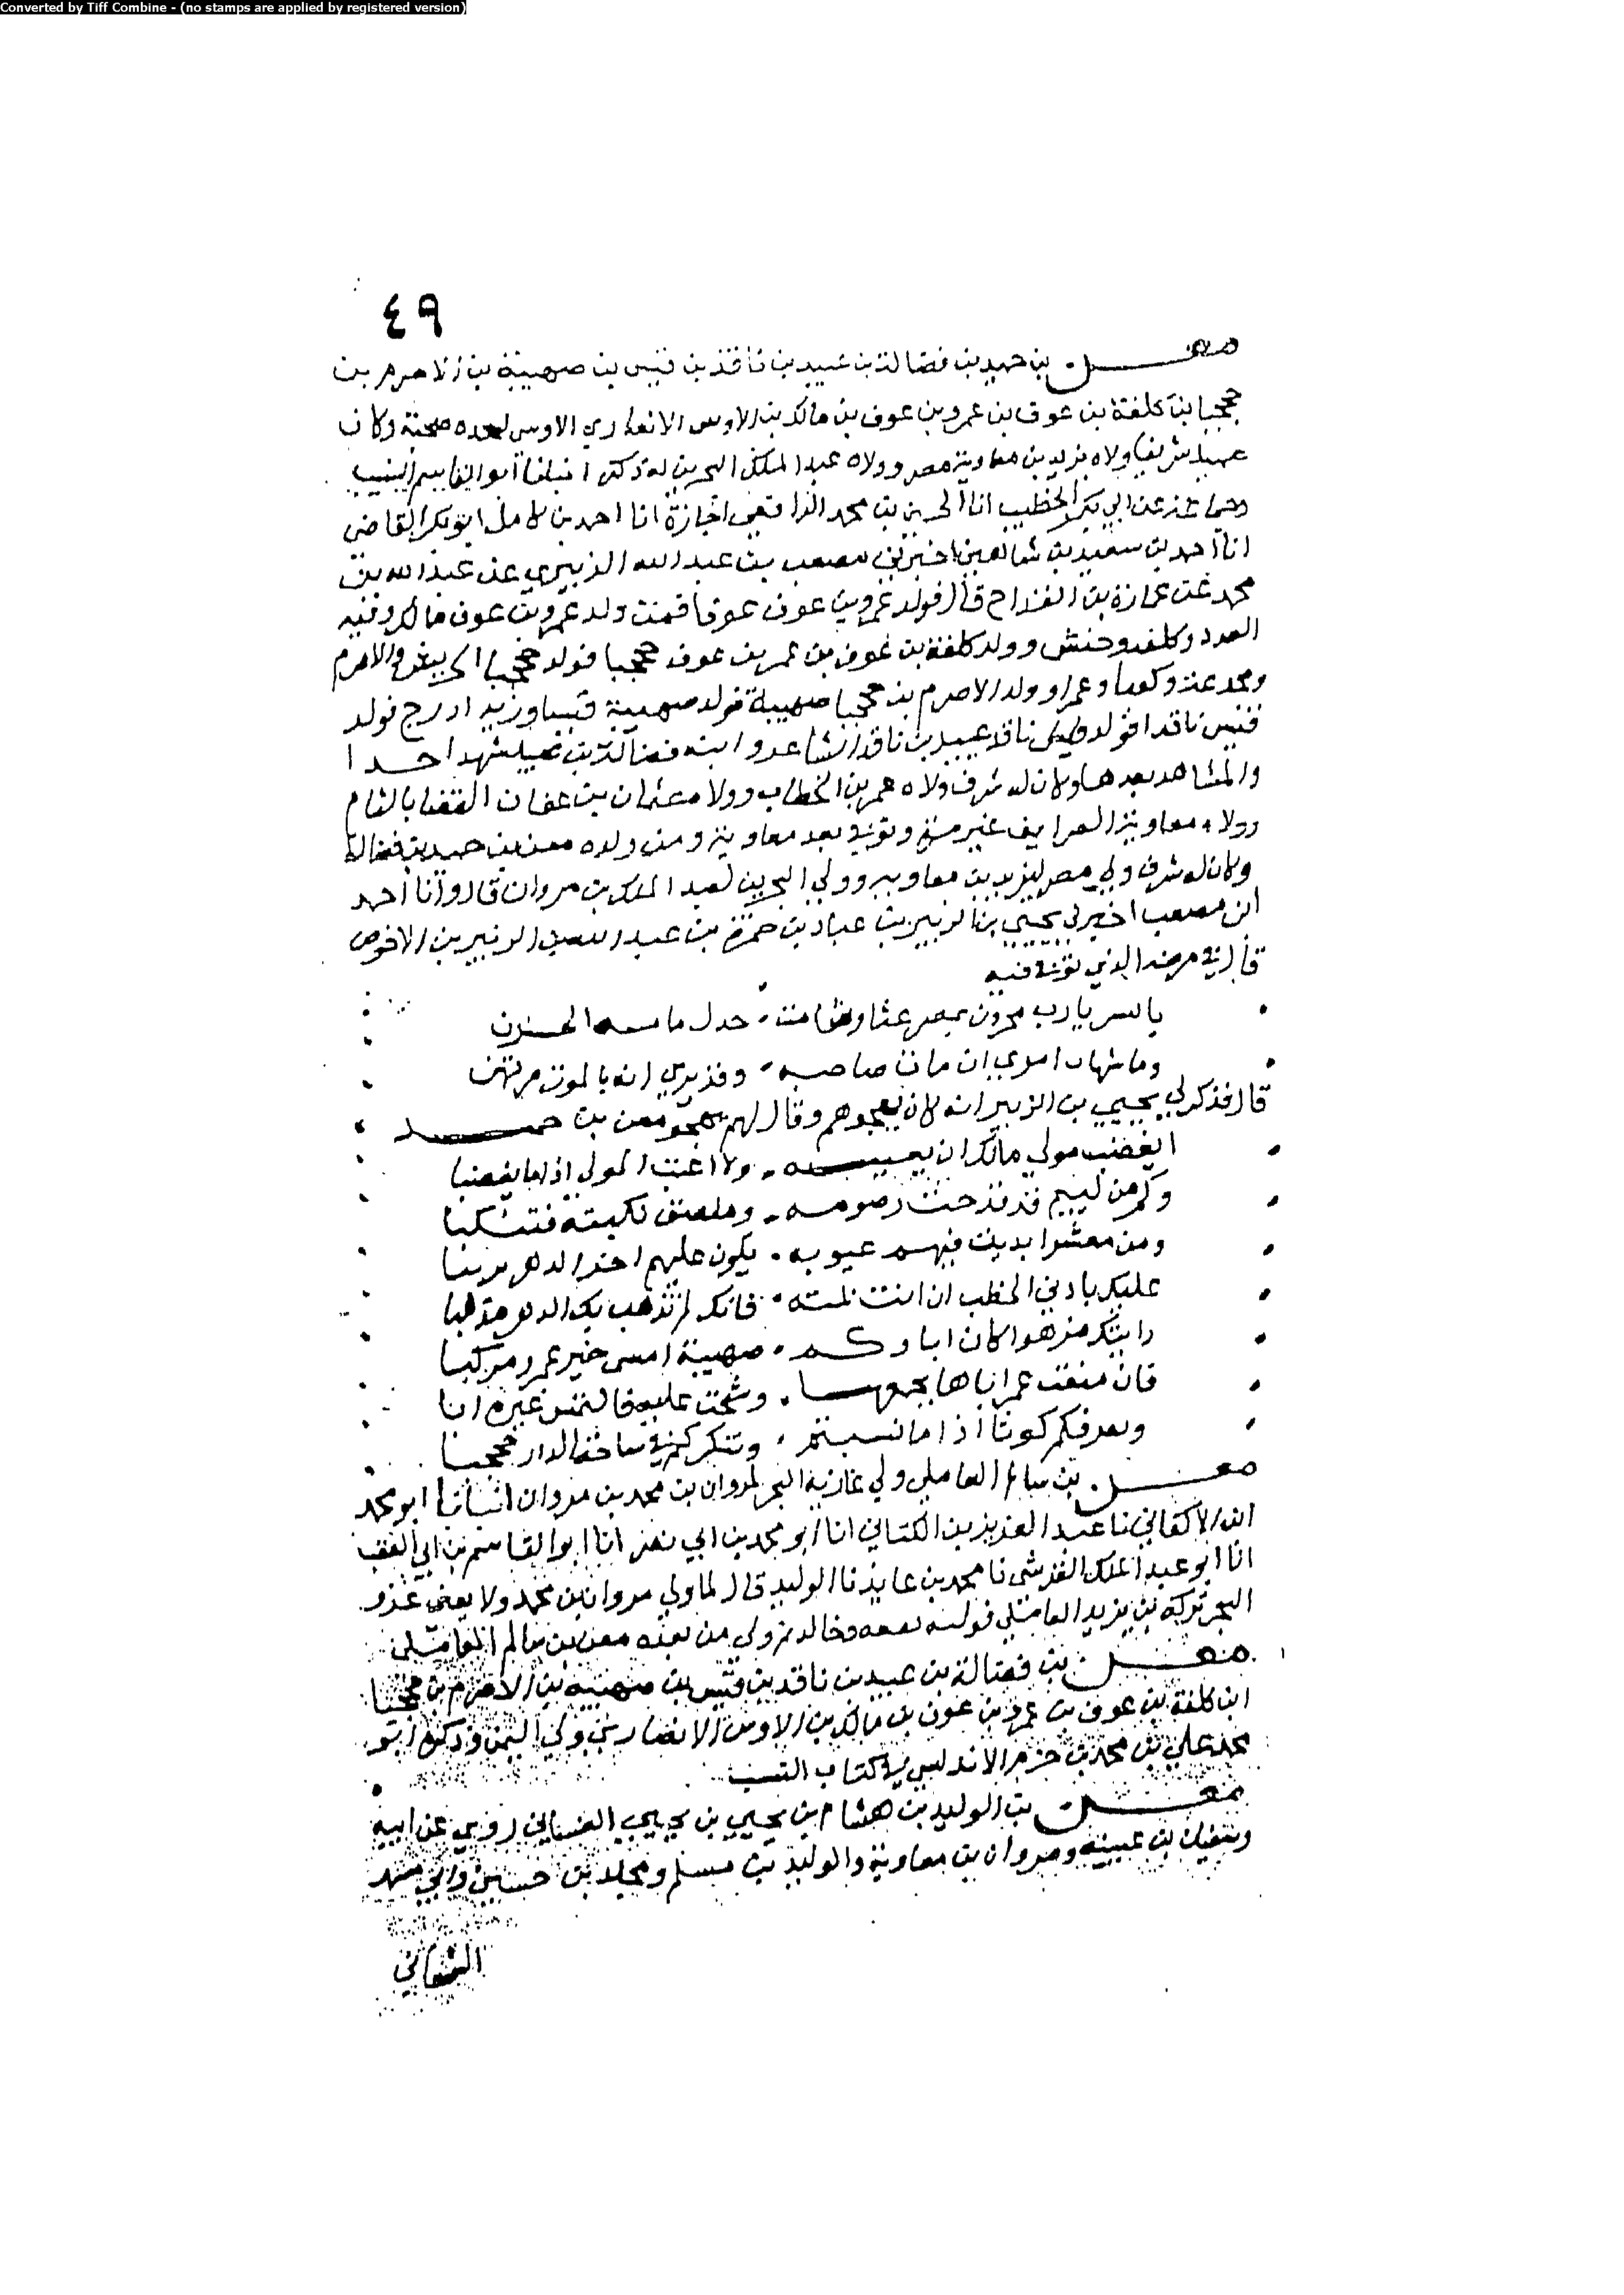 Converted by Tiff Combine - (no stamps are applied by registered version)
٤٩
معن بن حميد بن فضالة بن عبيد بن ناقد بن قيس بن صهيبة بن الاصرم بن
جحجبا بن كلفة بن عوف بن عمرو بن عوف بن مالك بن الاوس الانصاري الاوسي لجده صحبة وكان
شريفا ولاه يزيد بن معاوية مصر وولاه عبد الملك البحرين له ذكر انبانا ابو القاسم النسيب
وجماعة عن ابي بكر الخطيب انا الحسين بن محمد الرافقي اجازة انا احمد بن كامل ابو بكر القاضي
انا احمد بن سعيد بن شاهين اخبرني مصعب بن عبد الله الزبيري عن عبد الله بن
محمد عن عمارة بن القداح قال فولد عمرو بن عوف عوفا فمن ولد عمرو بن عوف مالك وفيه
العدد وكلفة وحنش وولد كلفة بن عوف بن عمر بن عوف جحجبا فولد جحجبا الحريش والاصرم
ومجدعة وكعبا وعمرا وولد الاصرم بن جحجبا صهيبة فولد صهيبة قيسا وزيدا درج فولد
قيس ناقدا فولد ناقد عبيد بن ناقد الشاعر وابنه فضالة بن عبيد شهد احدا
والمشاهد بعدها وكان له شرف ولاه عمر بن الخطاب وولاه عثمان بن عفان القضا بالشام
وولاه معاوية غير مرة وتوفي بعد معاوية ومن ولده معن بن حميد بن فضالة
وكان له شرف ولي مصر ليزيد بن معاوية وولي البحرين لعبد الملك بن مروان قال وانا احمد
ابن مصعب اخبرني يحيى بن الزبير بن عباد بن حمزة بن عبد الله بن الزبير بن الاخوص
قال في مرضه الذي توفي فيه
يا بشر يا رب محزون بمصرعنا وشامت جذل ما مسه الحزن
وما شمات امرئ ان مات صاحبه وقد يرى انه بالموت مرتهن
قال فذكر لي يحيى بن الزبير انه كان يهجوهم وقال لهم يهجو معن بن حميد
ايغضب مولى مالك ان يسبه ولا اعتب المولى اذا ما يغضبا
وكم من لئيم قد قدحت رصومه وملصق نكبته فتنكبا
ومن معشر ابديت فيهم عيوبه يكون عليهم اخر الدهر
عليك بادنى الخطب ان انت نلته فانك لم تذهب بك الدهر مذهبا
كان اباوكم صهيبة امسى خير عمرو مركبا
فان منعت عمر اباها وشحت عليه فالتمس غيره ابا
ويعرفكم كوثا اذا ما نسبتم وتنكركم في ساحة الدار جحجبا
معن بن سالم العاملي ولي غازية البحر لمروان بن محمد بن مروان انبانا ابو محمد
ابن الاكفاني نا عبد العزيز بن الكتاني انا ابو محمد بن ابي نصر انا ابو القاسم بن ابي العقب
انا ابو عبد الملك القرشي نا محمد بن عايذ نا الوليد قال لما ولي مروان بن محمد ولا يعني غزو
البحر بركة بن يزيد العاملي ولي من بعده معن بن سالم العاملي
معن بن فضالة بن عبيد بن ناقد بن قيس بن صهيبة بن الاصرم بن جحجبا
ابن كلفة بن عوف بن عمرو بن عوف بن مالك بن الاوس الانصاري ولي اليمن وذكره ابو
محمد علي بن محمد بن حزم الاندلسي في كتاب النسب
معن بن الوليد بن هشام بن يحيى بن يحيى الغساني روى عن ابيه
وسفيان بن عيينه ومروان بن معاوية والوليد بن مسلم ومخلد بن حسين وابي مسهر
الغساني